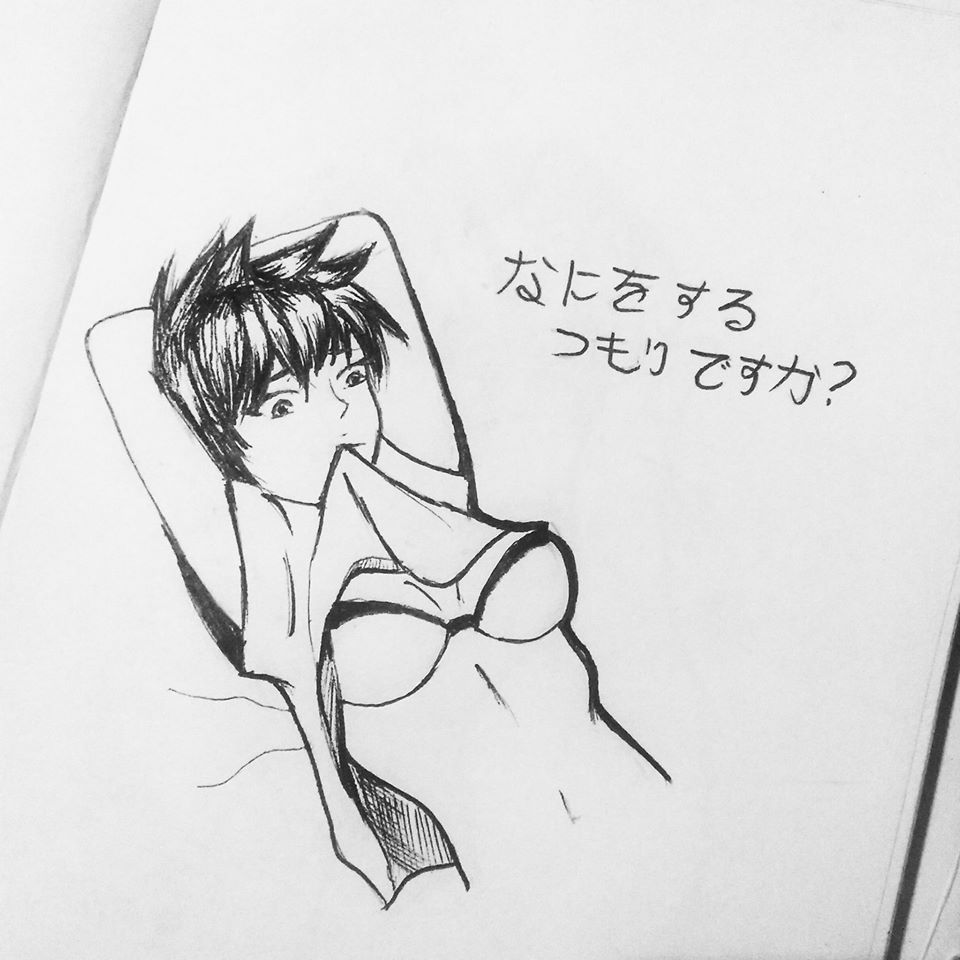 なにをする
つもりですか?